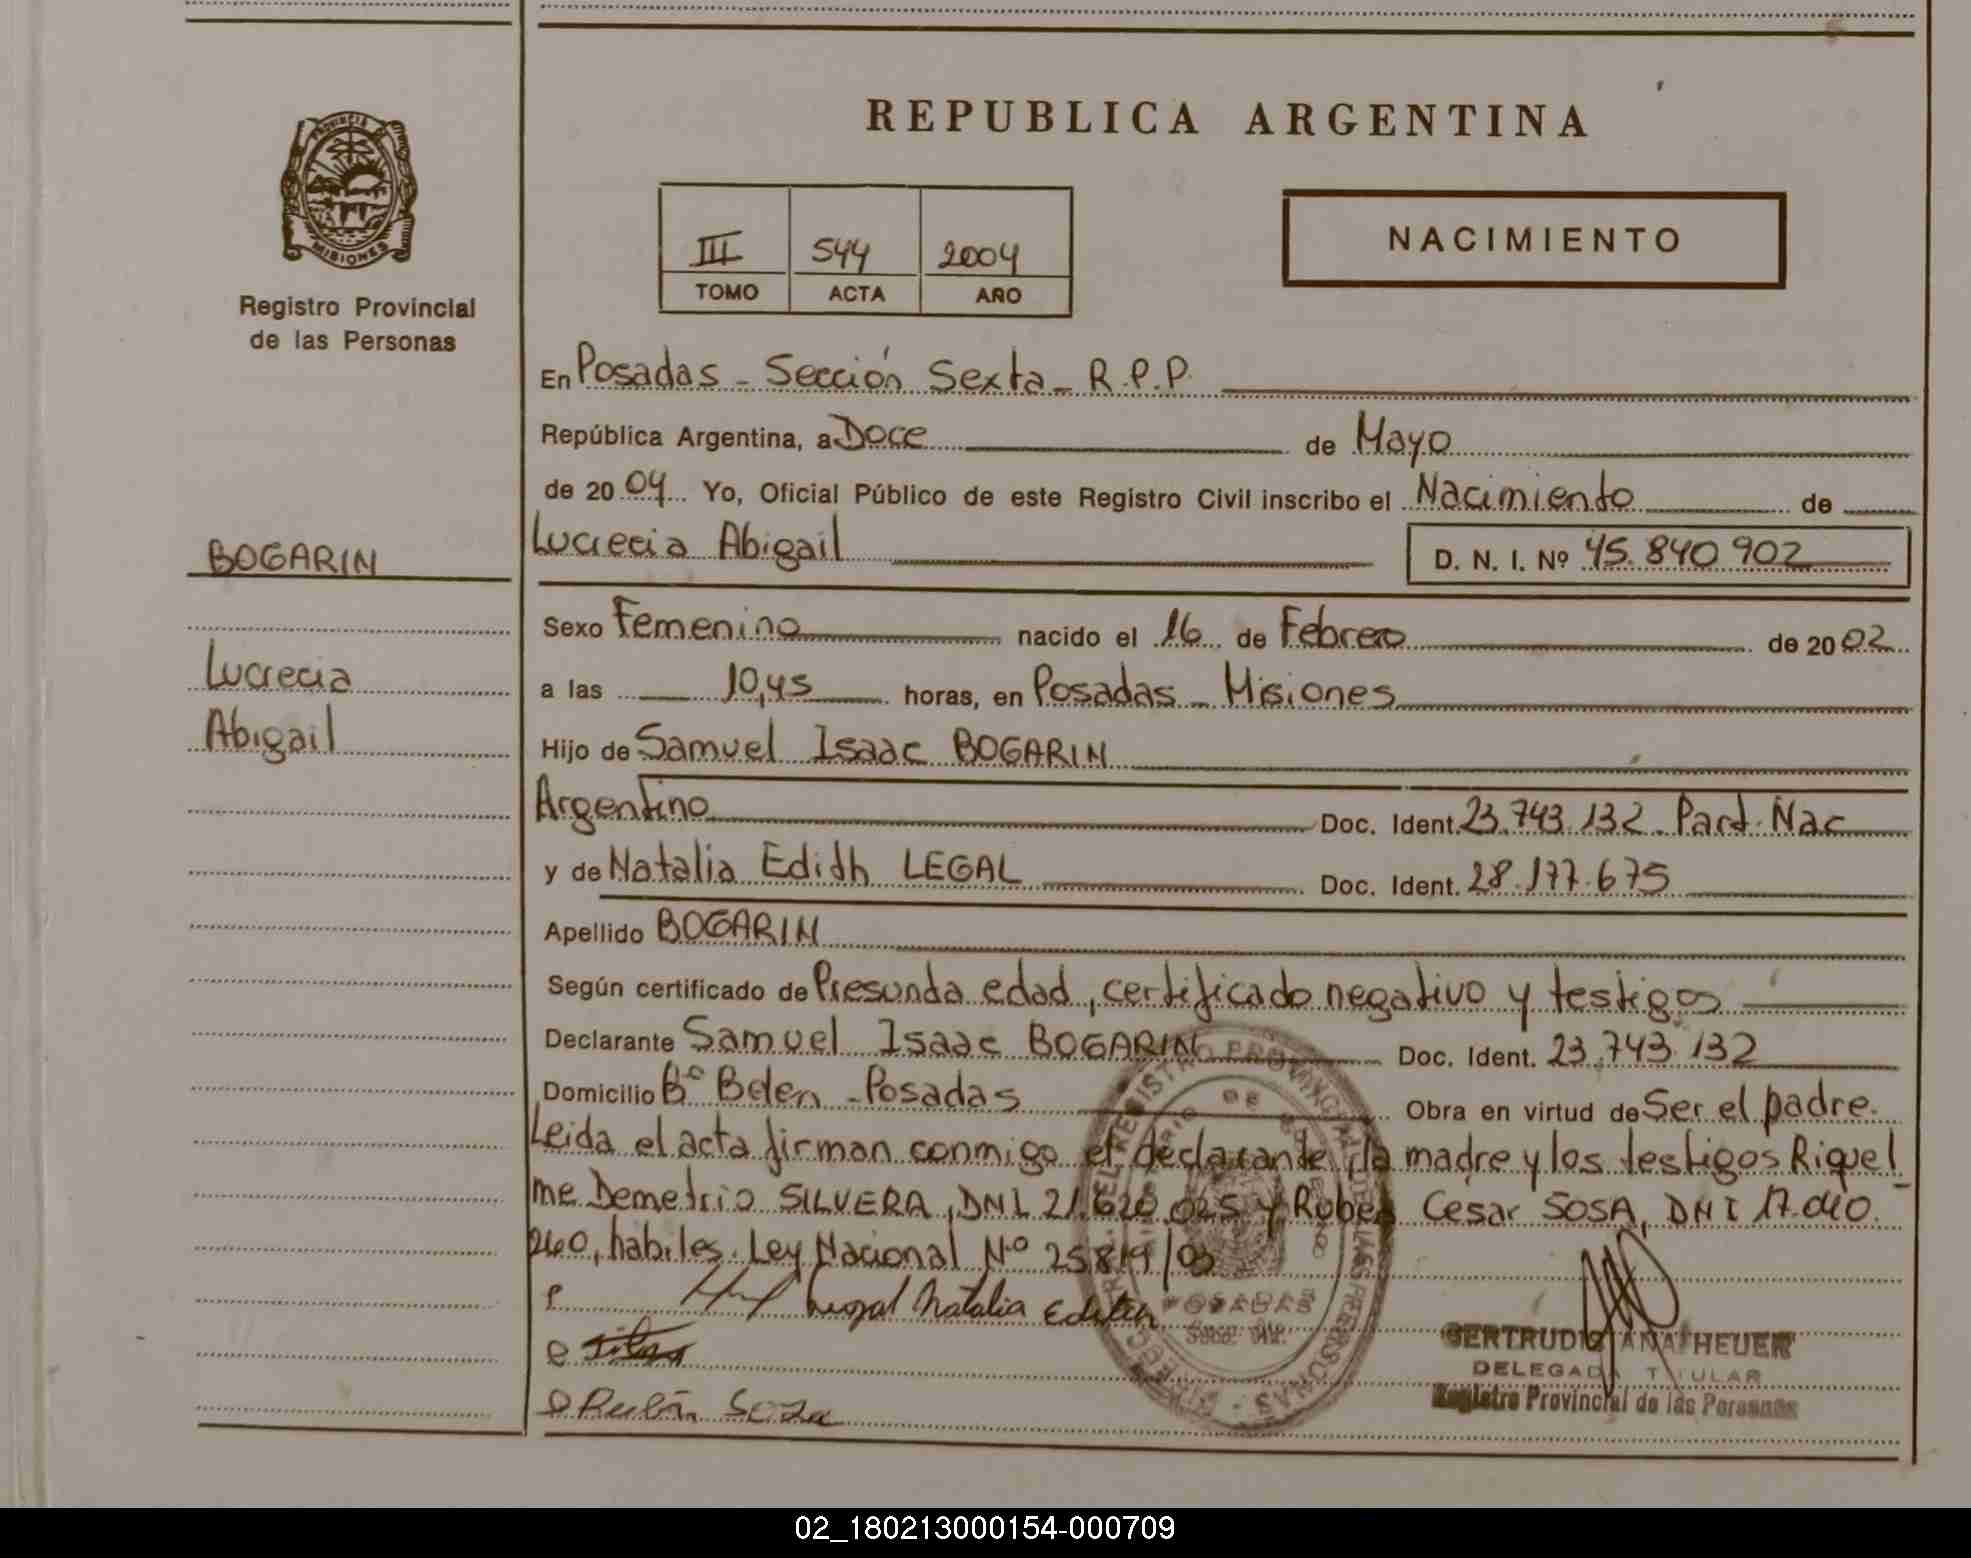 REPUBLICA ARGENTINA
PROVINCIA DE MISIONES
Registro Provincial
de las Personas
III 544 2004
TOMO ACTA AÑO
NACIMIENTO
En Posadas - Sección Sexta - R.P.P.
República Argentina, a Doce de Mayo
de 2004 Yo, Oficial Público de este Registro Civil inscribo el Nacimiento de
BOGARIN
Lucrecia Abigail D. N. I. Nº 45.840.902
Sexo Femenino nacido el 16 de Febrero de 2002
Lucrecia
a las 10,45 horas, en Posadas - Misiones
Abigail
Hijo de Samuel Isaac BOGARIN
Argentino Doc. Ident. 23.743.132. Pard. Nac
y de Natalia Edith LEGAL Doc. Ident. 28.177.675
Apellido BOGARIN
Según certificado de Presunda edad, certificado negativo y testigos
Declarante Samuel Isaac BOGARIN Doc. Ident. 23.743.132
Domicilio Bº Belen - Posadas Obra en virtud de Ser el padre.
Leida el acta firman conmigo el declarante, la madre y los testigos Riquel
me Demetrio SILVERA, DNI 21.620.025 y Ruben Cesar SOSA, DNI 17.040.
240, habiles. Ley Nacional Nº 25819/03
Legal Natalia Edith
Rubén Sosa
GERTRUDIS ANA HEUER
DELEGADA TITULAR
Registro Provincial de las Personas
POSADAS
02_180213000154-000709